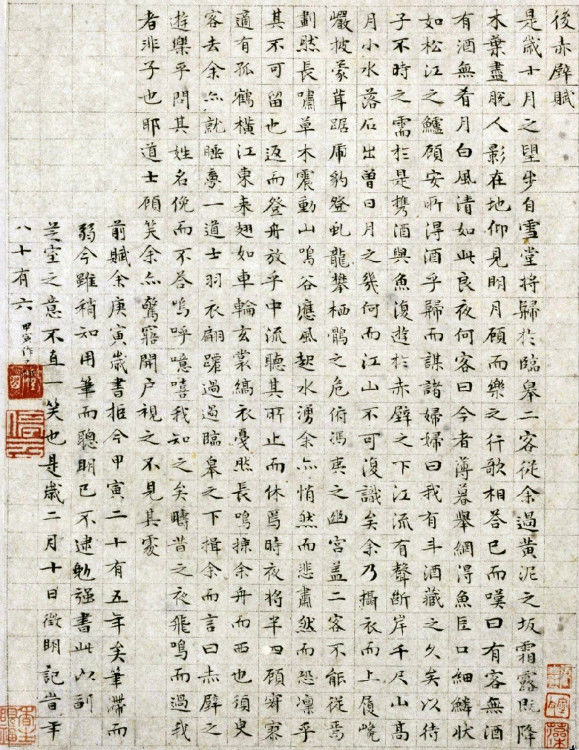 後赤壁賦
是歲十月之望步自雪堂將歸於臨皋二客從余過黃泥之坂霜露既降
木葉盡脫人影在地仰見明月顧而樂之行歌相答已而嘆曰有客無酒
有酒無肴月白風清如此良夜何客曰今者薄暮舉網得魚巨口細鱗狀
如松江之鱸顧安所得酒乎歸而謀諸婦婦曰我有斗酒藏之久矣以待
子不時之需於是攜酒與魚復遊於赤壁之下江流有聲斷岸千尺山高
月小水落石出曾日月之幾何而江山不可復識矣余乃攝衣而上履巉
巖披蒙茸踞虎豹登虬龍攀栖鶻之危俯馮夷之幽宮蓋二客不能從焉
劃然長嘯草木震動山鳴谷應風起水湧余亦悄然而悲肅然而恐凜乎
其不可留也返而登舟放乎中流聽其所止而休焉時夜將半四顧寂寥
適有孤鶴橫江東來翅如車輪玄裳縞衣戛然長鳴掠余舟而西也須臾
客去余亦就睡夢一道士羽衣翩躚過過臨皋之下揖余而言曰赤壁之
遊樂乎問其姓名俛而不答嗚呼噫嘻我知之矣疇昔之夜飛鳴而過我
者非子也耶道士顧笑余亦驚寤開戶視之不見其處
前賦余庚寅歲書拒今甲寅二十有五年矣筆滯而
弱今雖稍知用筆而聰明已不逮勉強書此以副
芝室之意不直一笑也是歲二月十日徵明記時年
八十有六 甲寅作